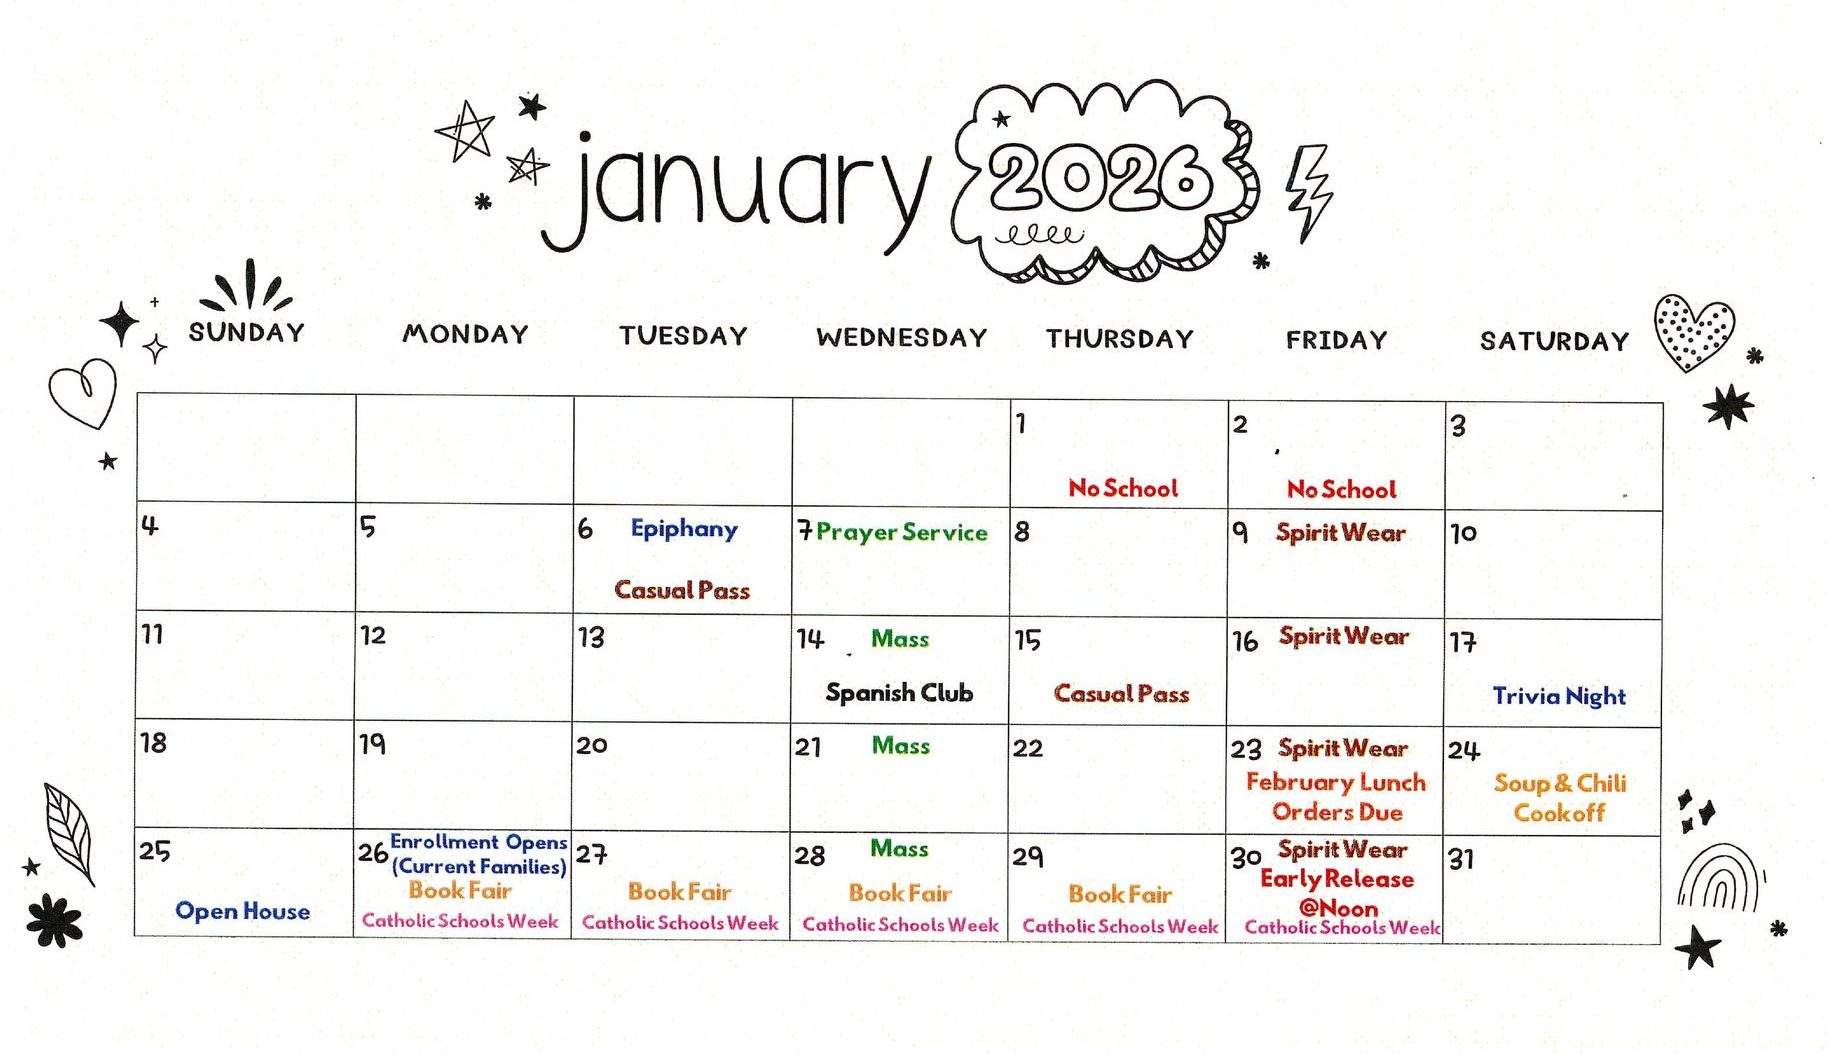 january 2026
SUNDAY MONDAY TUESDAY WEDNESDAY THURSDAY FRIDAY SATURDAY
1
No School
2
No School
3
4
5
6 Epiphany
Casual Pass
7 Prayer Service
8
9 Spirit Wear
10
11
12
13
14 Mass
Spanish Club
15
Casual Pass
16 Spirit Wear
17
Trivia Night
18
19
20
21 Mass
22
23 Spirit Wear
February Lunch
Orders Due
24
Soup & Chili
Cookoff
25
Open House
26 Enrollment Opens
(Current Families)
Book Fair
Catholic Schools Week
27
Book Fair
Catholic Schools Week
28 Mass
Book Fair
Catholic Schools Week
29
Book Fair
Catholic Schools Week
30 Spirit Wear
Early Release
@Noon
Catholic Schools Week
31